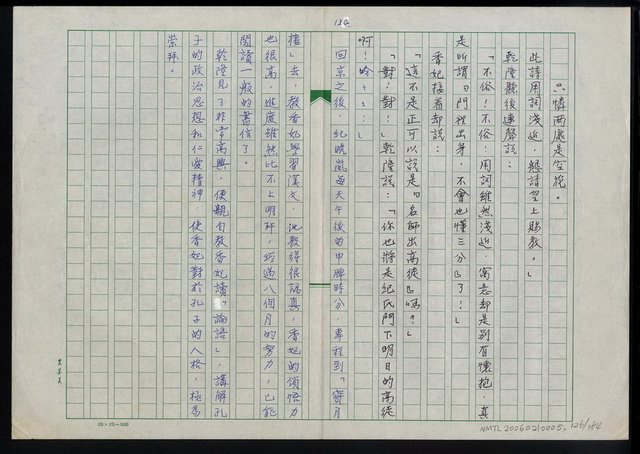 124
只憐兩處是空花。
此詩用詞淺近，懇請皇上賜教。」
乾隆聽後連聲說：
「不俗！不俗！用詞雖然淺近，寓意却是別有懷抱，真
是所謂『門裡出身，不會也懂三分』了！」
香妃接着却說：
「這不是正可以說是『名師出高徒』嗎？」
「對！對！」乾隆說：「你也將是紀氏門下明日的高徒
啊！哈……！」
回京之後，紀曉嵐每天午後的申牌時分，專程到「寶月
樓」去，教香妃學習漢文。他教得很認真，香妃的領悟力
也很高，進度雖然比不上明玕，經過八個月的努力，已能
閱讀一般的書信了。
乾隆見了非常高興，便親自教香妃讀「論語」，講解孔
子的政治思想和仁愛精神，使香妃對於孔子的人格，極為
崇拜。
20×25=500
NMTL20060210005
126/184